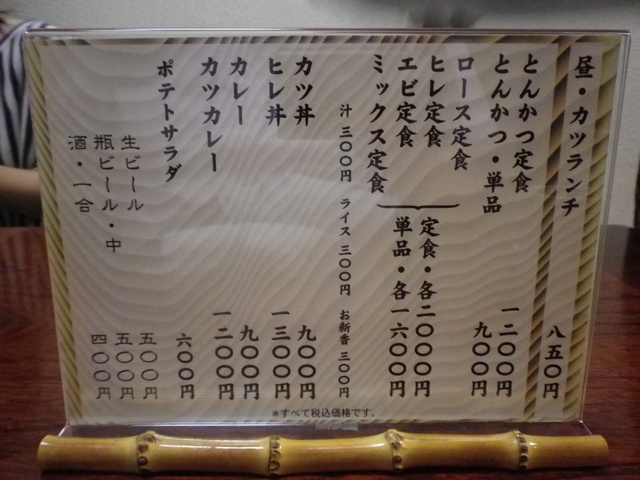 昼・カツランチ 八五〇円
とんかつ定食 一二〇〇円
とんかつ・単品 九〇〇円
ロース定食
ヒレ定食
エビ定食
ミックス定食
定食・各二〇〇〇円
単品・各一六〇〇円
汁 三〇〇円 ライス 三〇〇円 お新香 三〇〇円
カツ丼 九〇〇円
ヒレ丼 一三〇〇円
カレー 九〇〇円
カツカレー 一二〇〇円
ポテトサラダ 六〇〇円
生ビール 五〇〇円
瓶ビール・中 五〇〇円
酒・一合 四〇〇円
※すべて税込価格です。